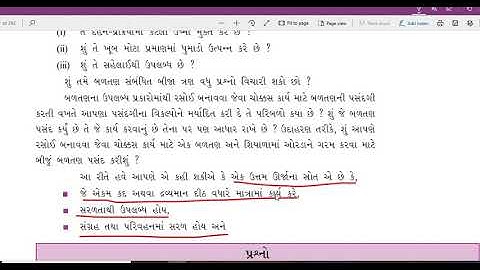 (i) તે દહન-પ્રક્રિયામાં કેટલી ઉષ્મા મુક્ત કરે છે ?
(ii) શું તે ખૂબ મોટા પ્રમાણમાં ધુમાડો ઉત્પન્ન કરે છે ?
(iii) શું તે સહેલાઈથી ઉપલબ્ધ છે ?
શું તમે બળતણ સંબંધિત બીજા ત્રણ વધુ પ્રશ્નો વિચારી શકો છો ?
બળતણના ઉપલબ્ધ પ્રકારોમાંથી રસોઈ બનાવવા જેવા ચોક્કસ કાર્ય માટે બળતણની પસંદગી
કરતી વખતે આપણા પસંદગીના વિકલ્પોને મર્યાદિત કરી દે તે પરિબળો કયા છે ? શું જે બળતણ
પસંદ કર્યું છે તે જે કાર્ય કરવાનું છે તેના પર પણ આધાર રાખે છે ? ઉદાહરણ તરીકે, શું આપણે
રસોઈ બનાવવા જેવા ચોક્કસ કાર્ય માટે એક બળતણ અને શિયાળામાં ઓરડાને ગરમ કરવા માટે
બીજું બળતણ પસંદ કરીશું ?
આ રીતે હવે આપણે એ કહી શકીએ કે એક ઉત્તમ ઊર્જાના સ્રોત એ છે કે,
■ જે એકમ કદ અથવા દ્રવ્યમાન દીઠ વધારે માત્રામાં કાર્ય કરે,
■ સરળતાથી ઉપલબ્ધ હોય,
■ સંગ્રહ તથા પરિવહનમાં સરળ હોય અને
પ્રશ્નો